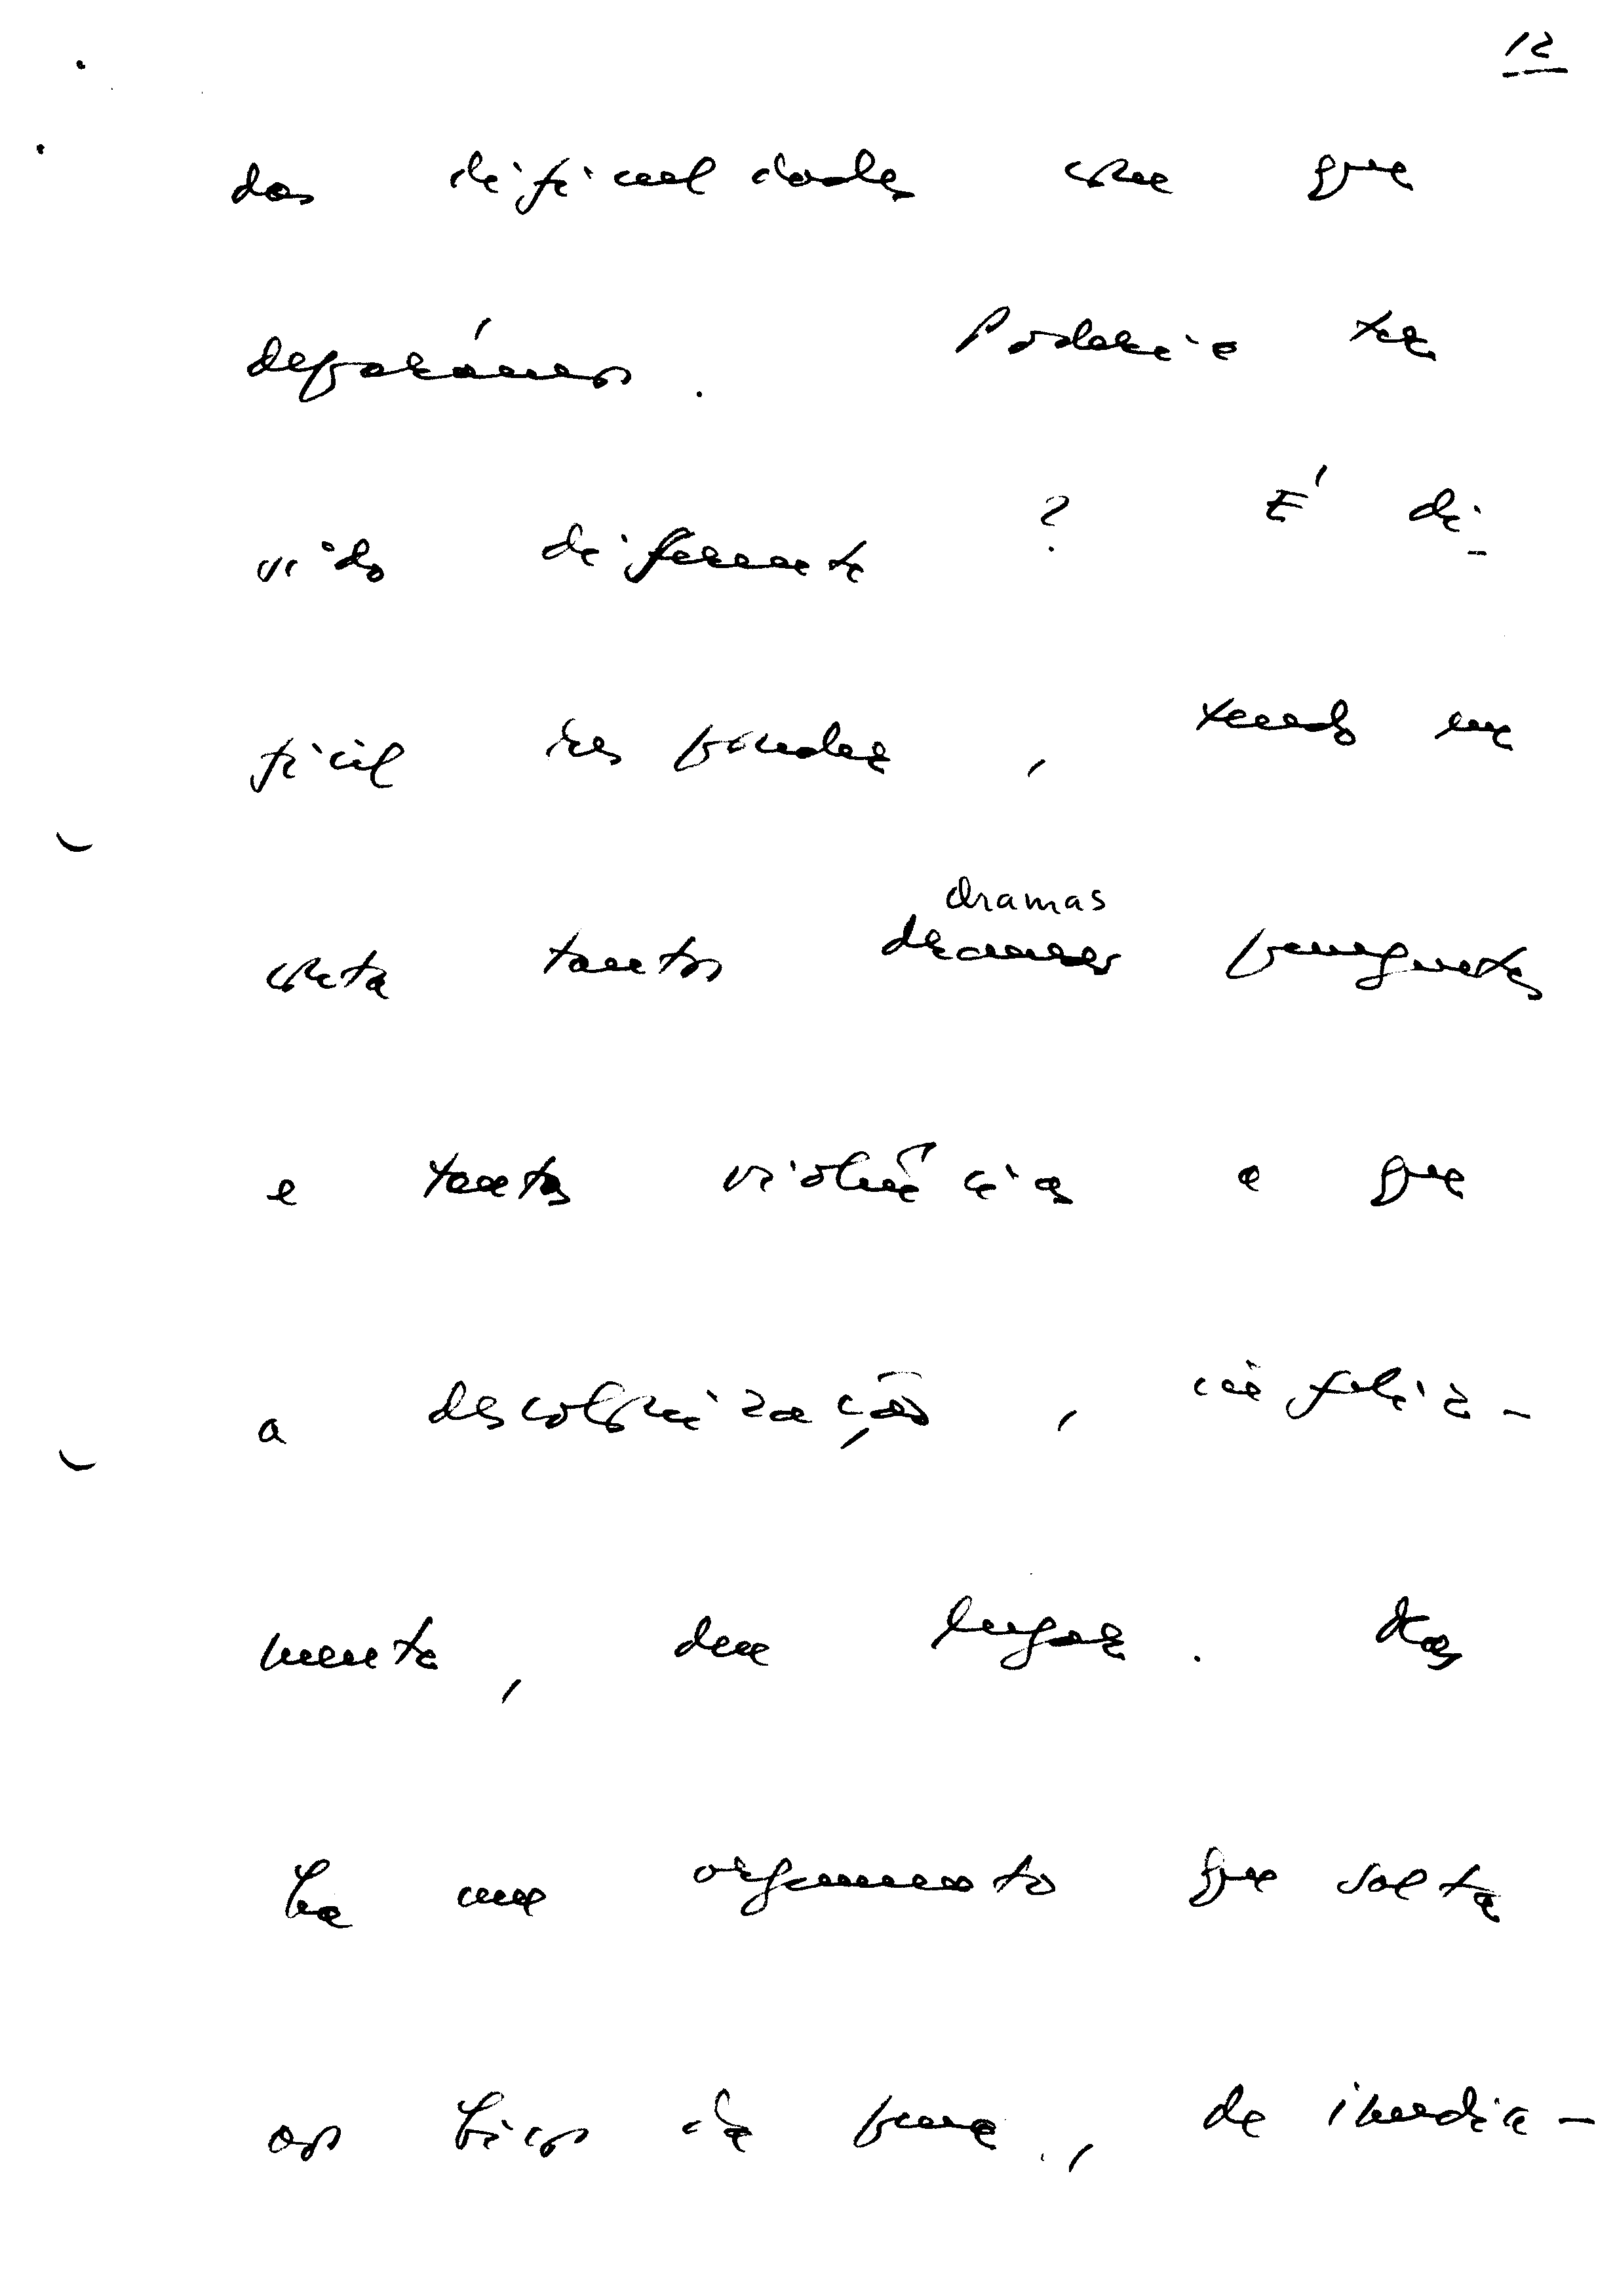 12
das dificuldades com que
deparámos. Poderia ter
sido diferente? É di-
fícil responder, tendo em
conta tantos dramas
dramas pungentes
e tantas violências a que
a descolonização, infeliz-
mente, deu lugar. Mas
há um argumento que salta
aos bicos da pena, de imedia-